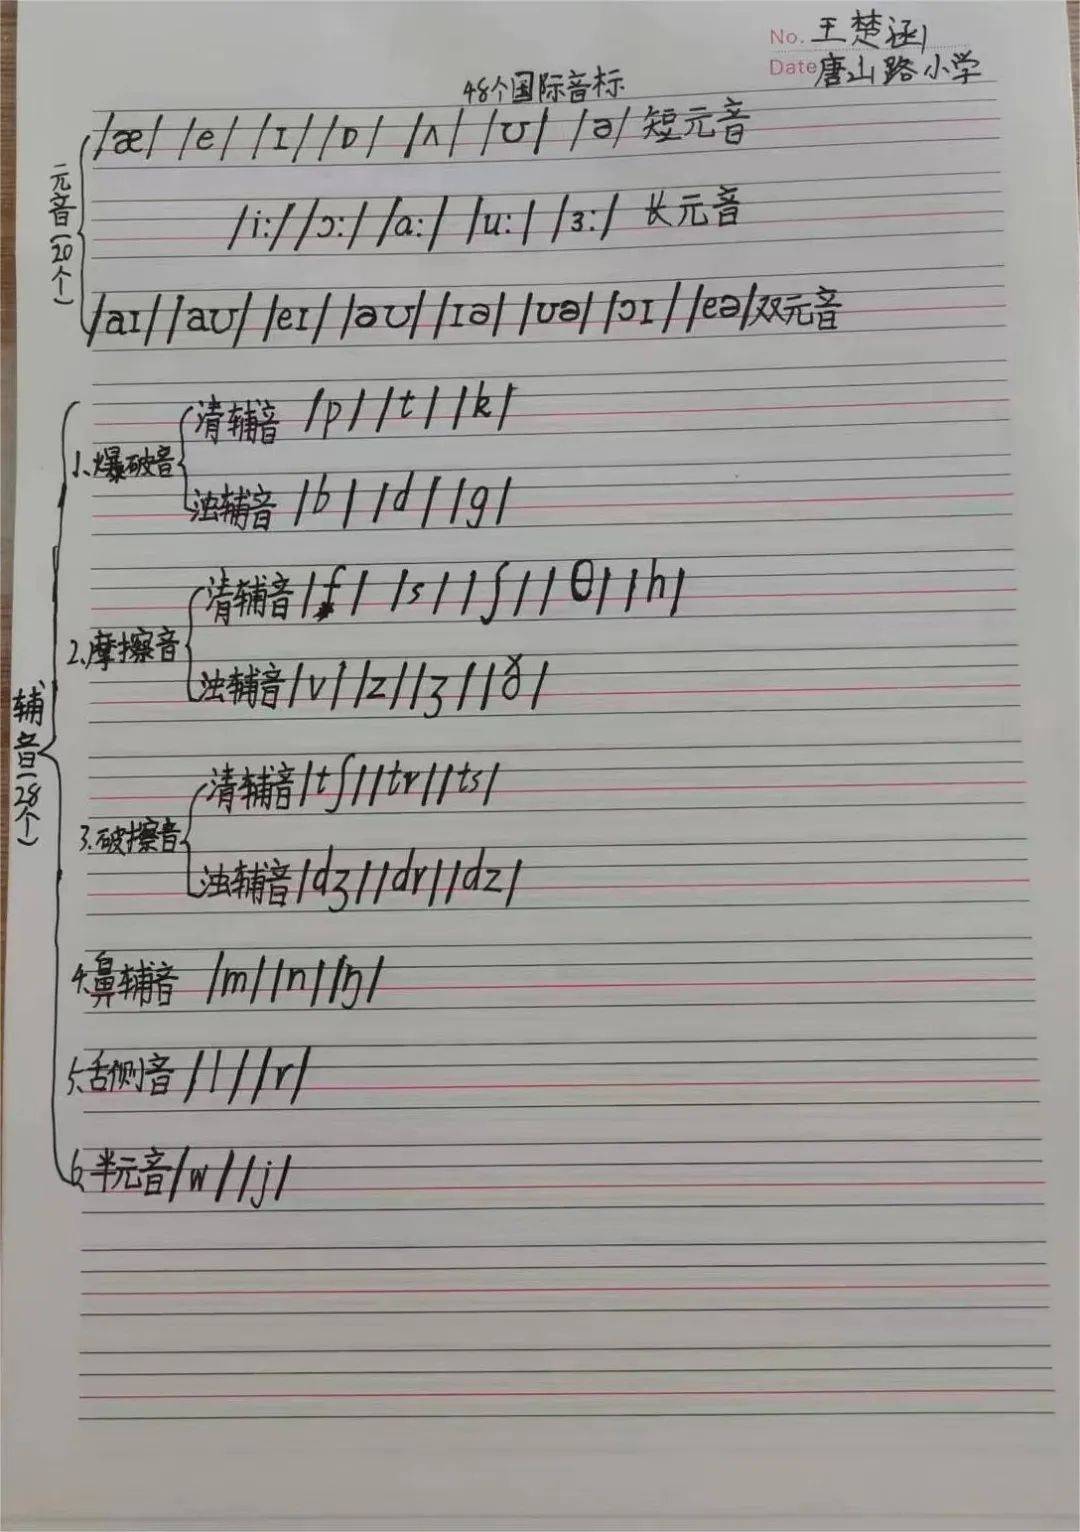 No. 王楚涵
Date 唐山路小学
48个国际音标
元音(20个)
/æ/ /e/ /ɪ/ /ɒ/ /ʌ/ /ʊ/ /ə/ 短元音
/i:/ /ɔ:/ /a:/ /u:/ /ɜ:/ 长元音
/aɪ/ /aʊ/ /eɪ/ /əʊ/ /ɪə/ /ʊə/ /ɔɪ/ /eə/ 双元音
辅音(28个)
1、爆破音
清辅音 /p/ /t/ /k/
浊辅音 /b/ /d/ /g/
2、摩擦音
清辅音 /f/ /s/ /ʃ/ /θ/ /h/
浊辅音 /v/ /z/ /ʒ/ /ð/
3.破擦音
清辅音 /tʃ/ /tr/ /ts/
浊辅音 /dʒ/ /dr/ /dz/
4.鼻辅音 /m/ /n/ /ŋ/
5、舌侧音 /l/ /r/
6、半元音 /w/ /j/